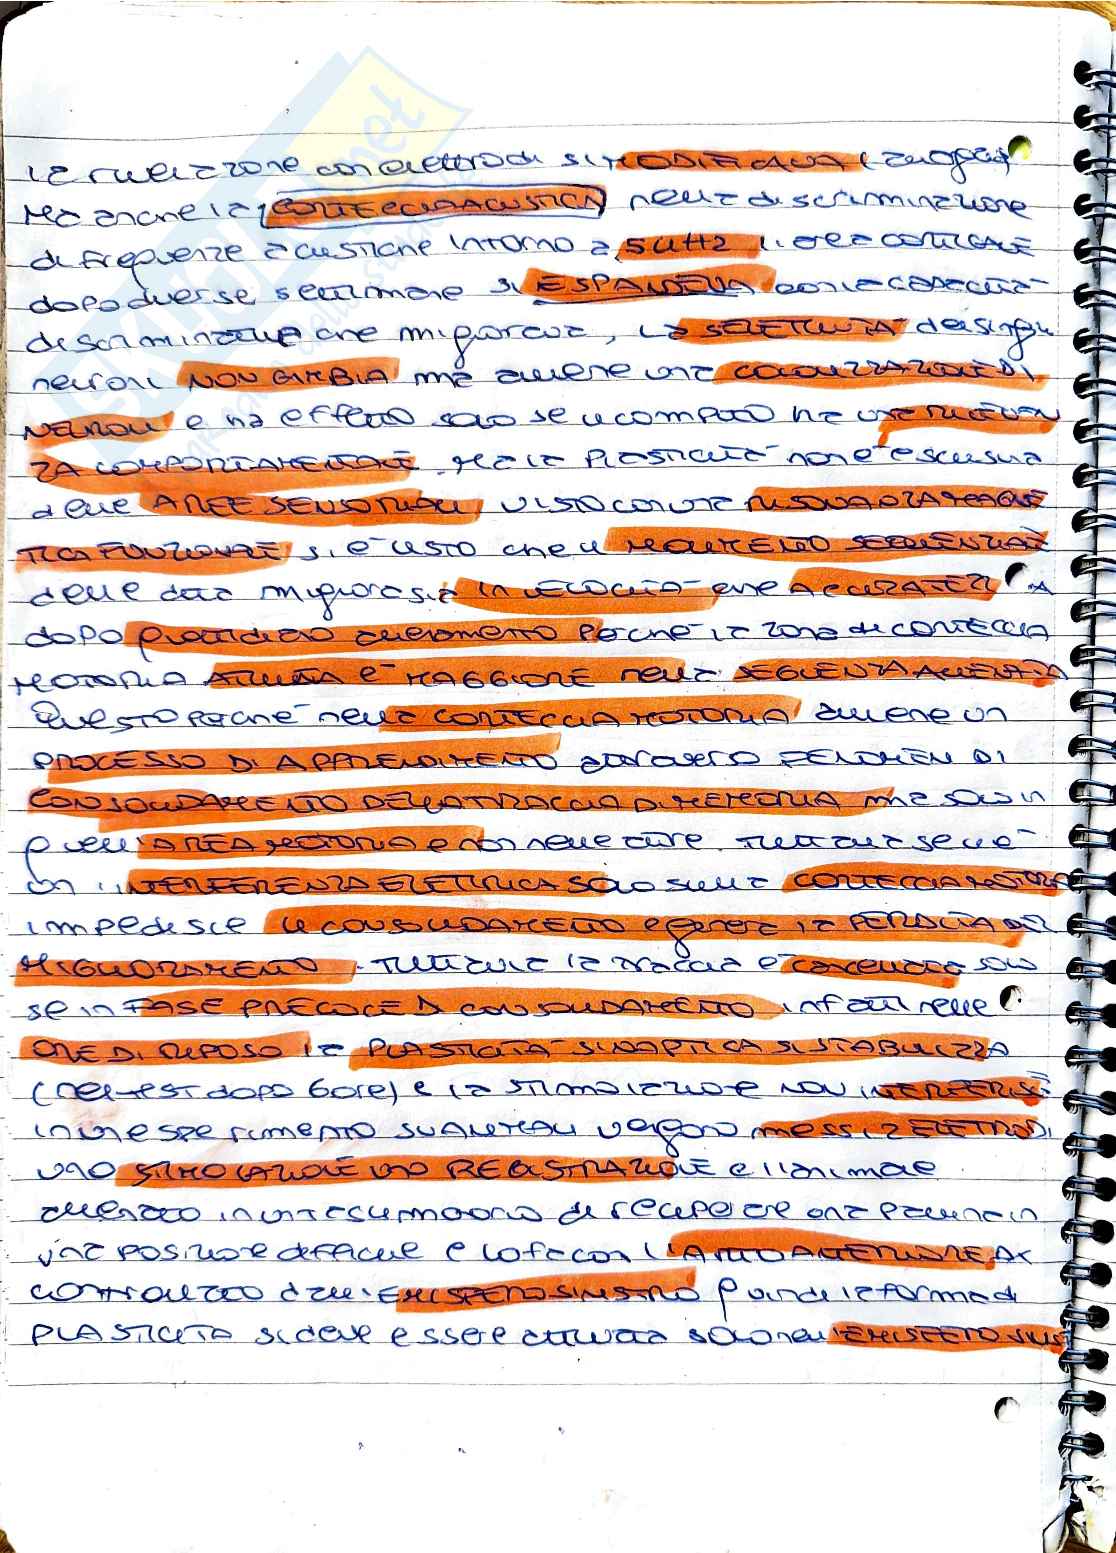 la rilevazione con elettrodi si MODIFICAVA
Ma anche la CORTECCIA ACUSTICA nella discriminazione
di frequenze acustiche intorno a 5 kHz l'area CORTICALE
dopo diverse settimane si ESPANDEVA con la capacità
discriminativa che migliorava, La SELETTIVITÀ dei singoli
neuroni NON CAMBIA ma avviene una COLONIZZAZIONE DI
NEURONI e ha effetto solo se il compito ha una RILEVAN
ZA COMPORTAMENTALE. Ma la PLASTICITÀ non è esclusiva
delle AREE SENSORIALI visto con una RISONANZA MAGNE
TICA FUNZIONALE si è visto che il MOVIMENTO SEQUENZIALE
delle dita migliora sia in VELOCITÀ che ACCURATEZZA
dopo quotidiano allenamento perché la zona di CORTECCIA
MOTORIA ATTIVATA è MAGGIORE nella SEQUENZA ALLENATA
Questo perché nella CORTECCIA MOTORIA avviene un
PROCESSO DI APPRENDIMENTO attraverso FENOMENI DI
CONSOLIDAMENTO DELLA TRACCIA DI MEMORIA ma solo in
quell'AREA MOTORIA e non nelle altre. Tuttavia se c'è
un'INTERFERENZA ELETTRICA solo sulla CORTECCIA MOTORIA
impedisce il CONSOLIDAMENTO e genera la PERDITA DEL
MIGLIORAMENTO. Tuttavia la traccia è cancellata solo
se in FASE PRECOCE DI CONSOLIDAMENTO infatti nelle
ORE DI RIPOSO la PLASTICITÀ SINAPTICA SI STABILIZZA
(re-test dopo 6 ore) e la stimolazione NON INTERFERISCE
in un esperimento su ANIMALI vengono messi 2 ELETTRODI
uno STIMOLAZIONE uno REGISTRAZIONE e l'animale
allenato in un di recuperare una in
una posizione difficile e lo fa con l'ARTO ANTERIORE DX
controllato dall'EMISFERO SINISTRO quindi la forma di
PLASTICITÀ si deve essere attivata solo nell'EMISFERO